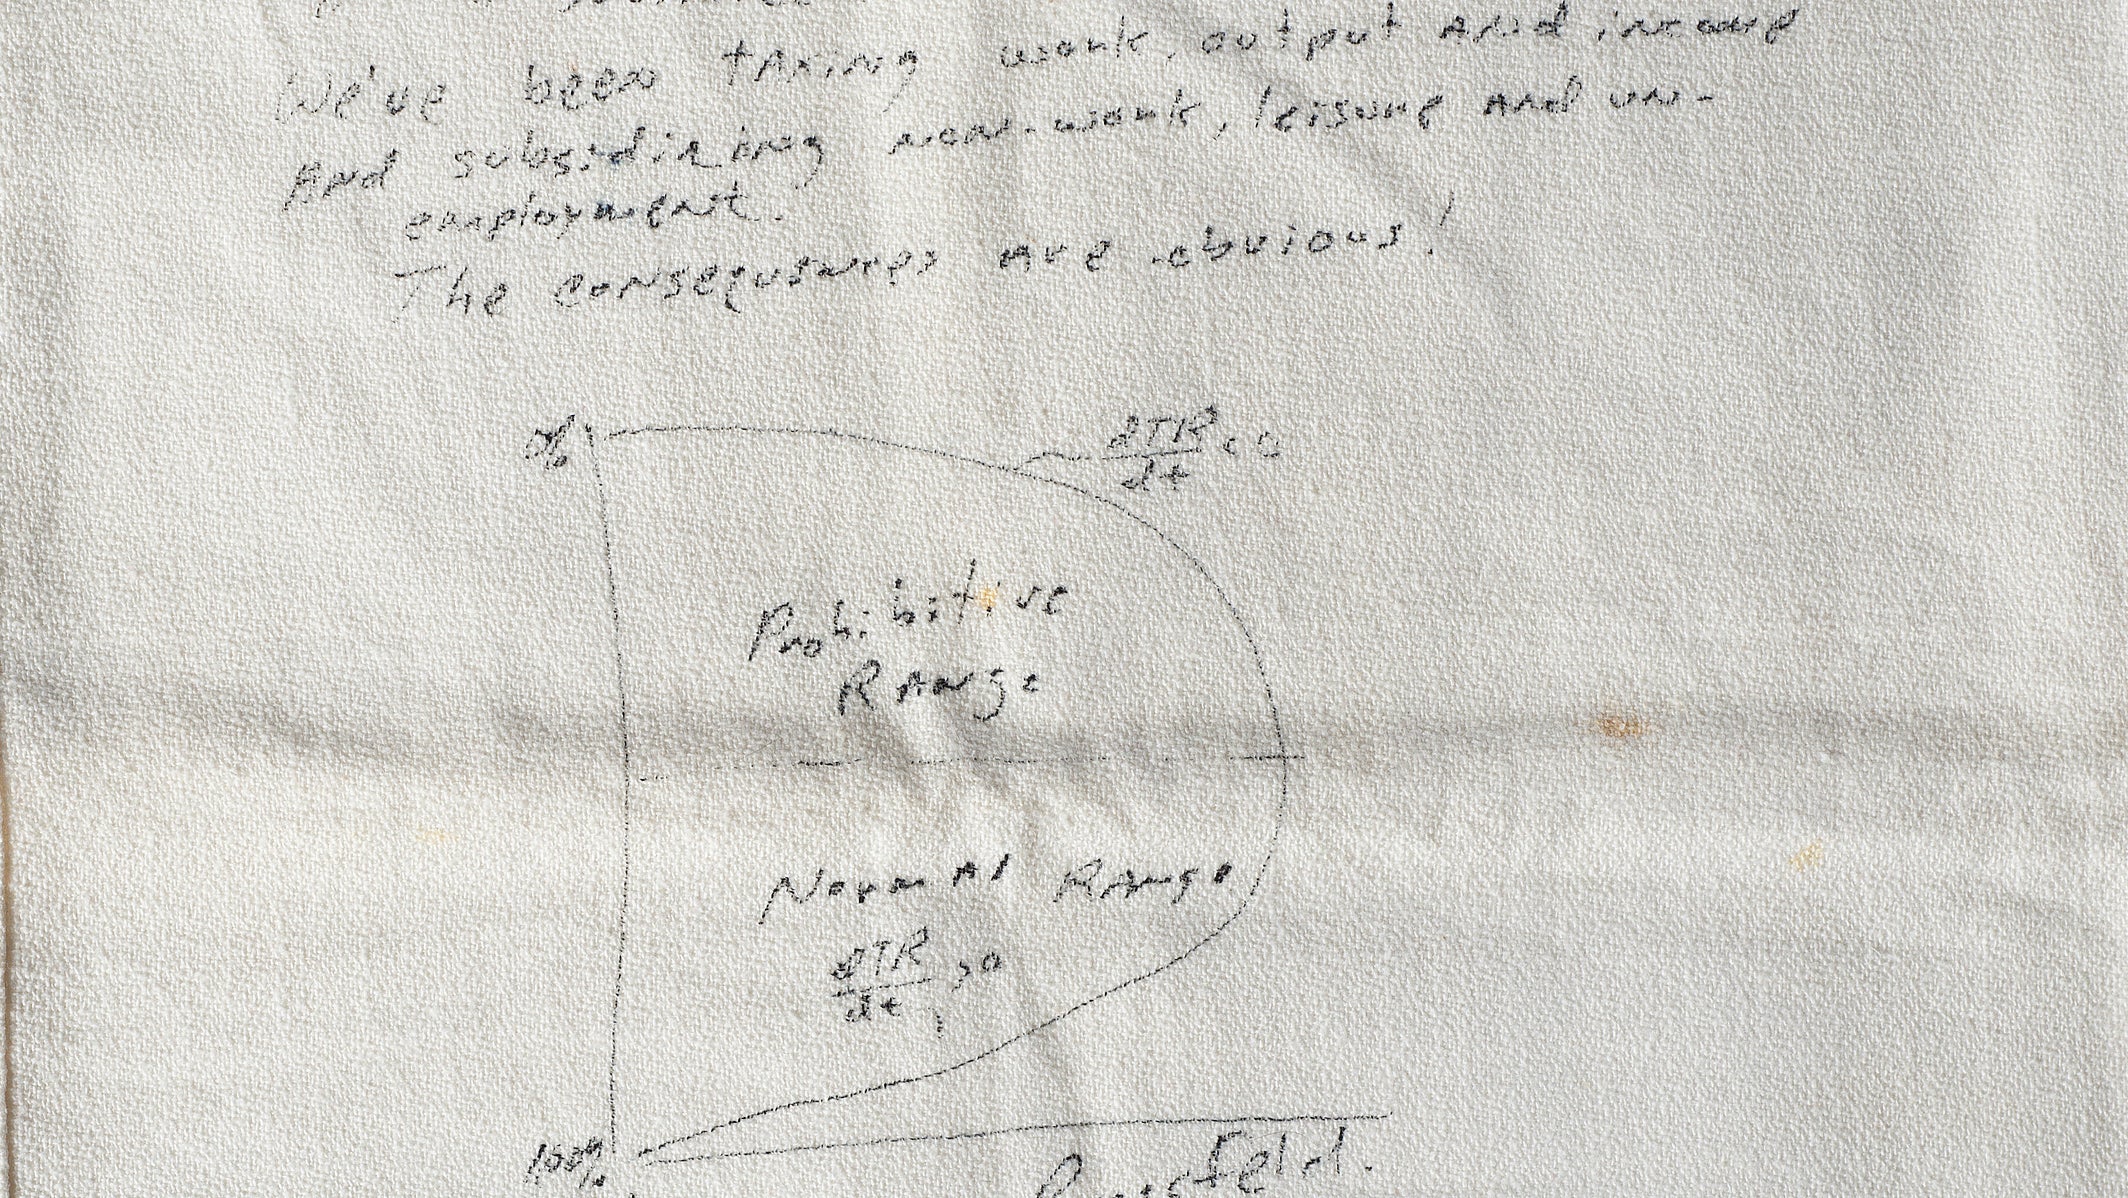 We've been taxing work, output and income
And subsidizing non-work, leisure and un-
employment.
The consequences are obvious!
0%
dTR/dt < 0
Prohibitive
Range
Normal Range
dTR/dt > 0
100%